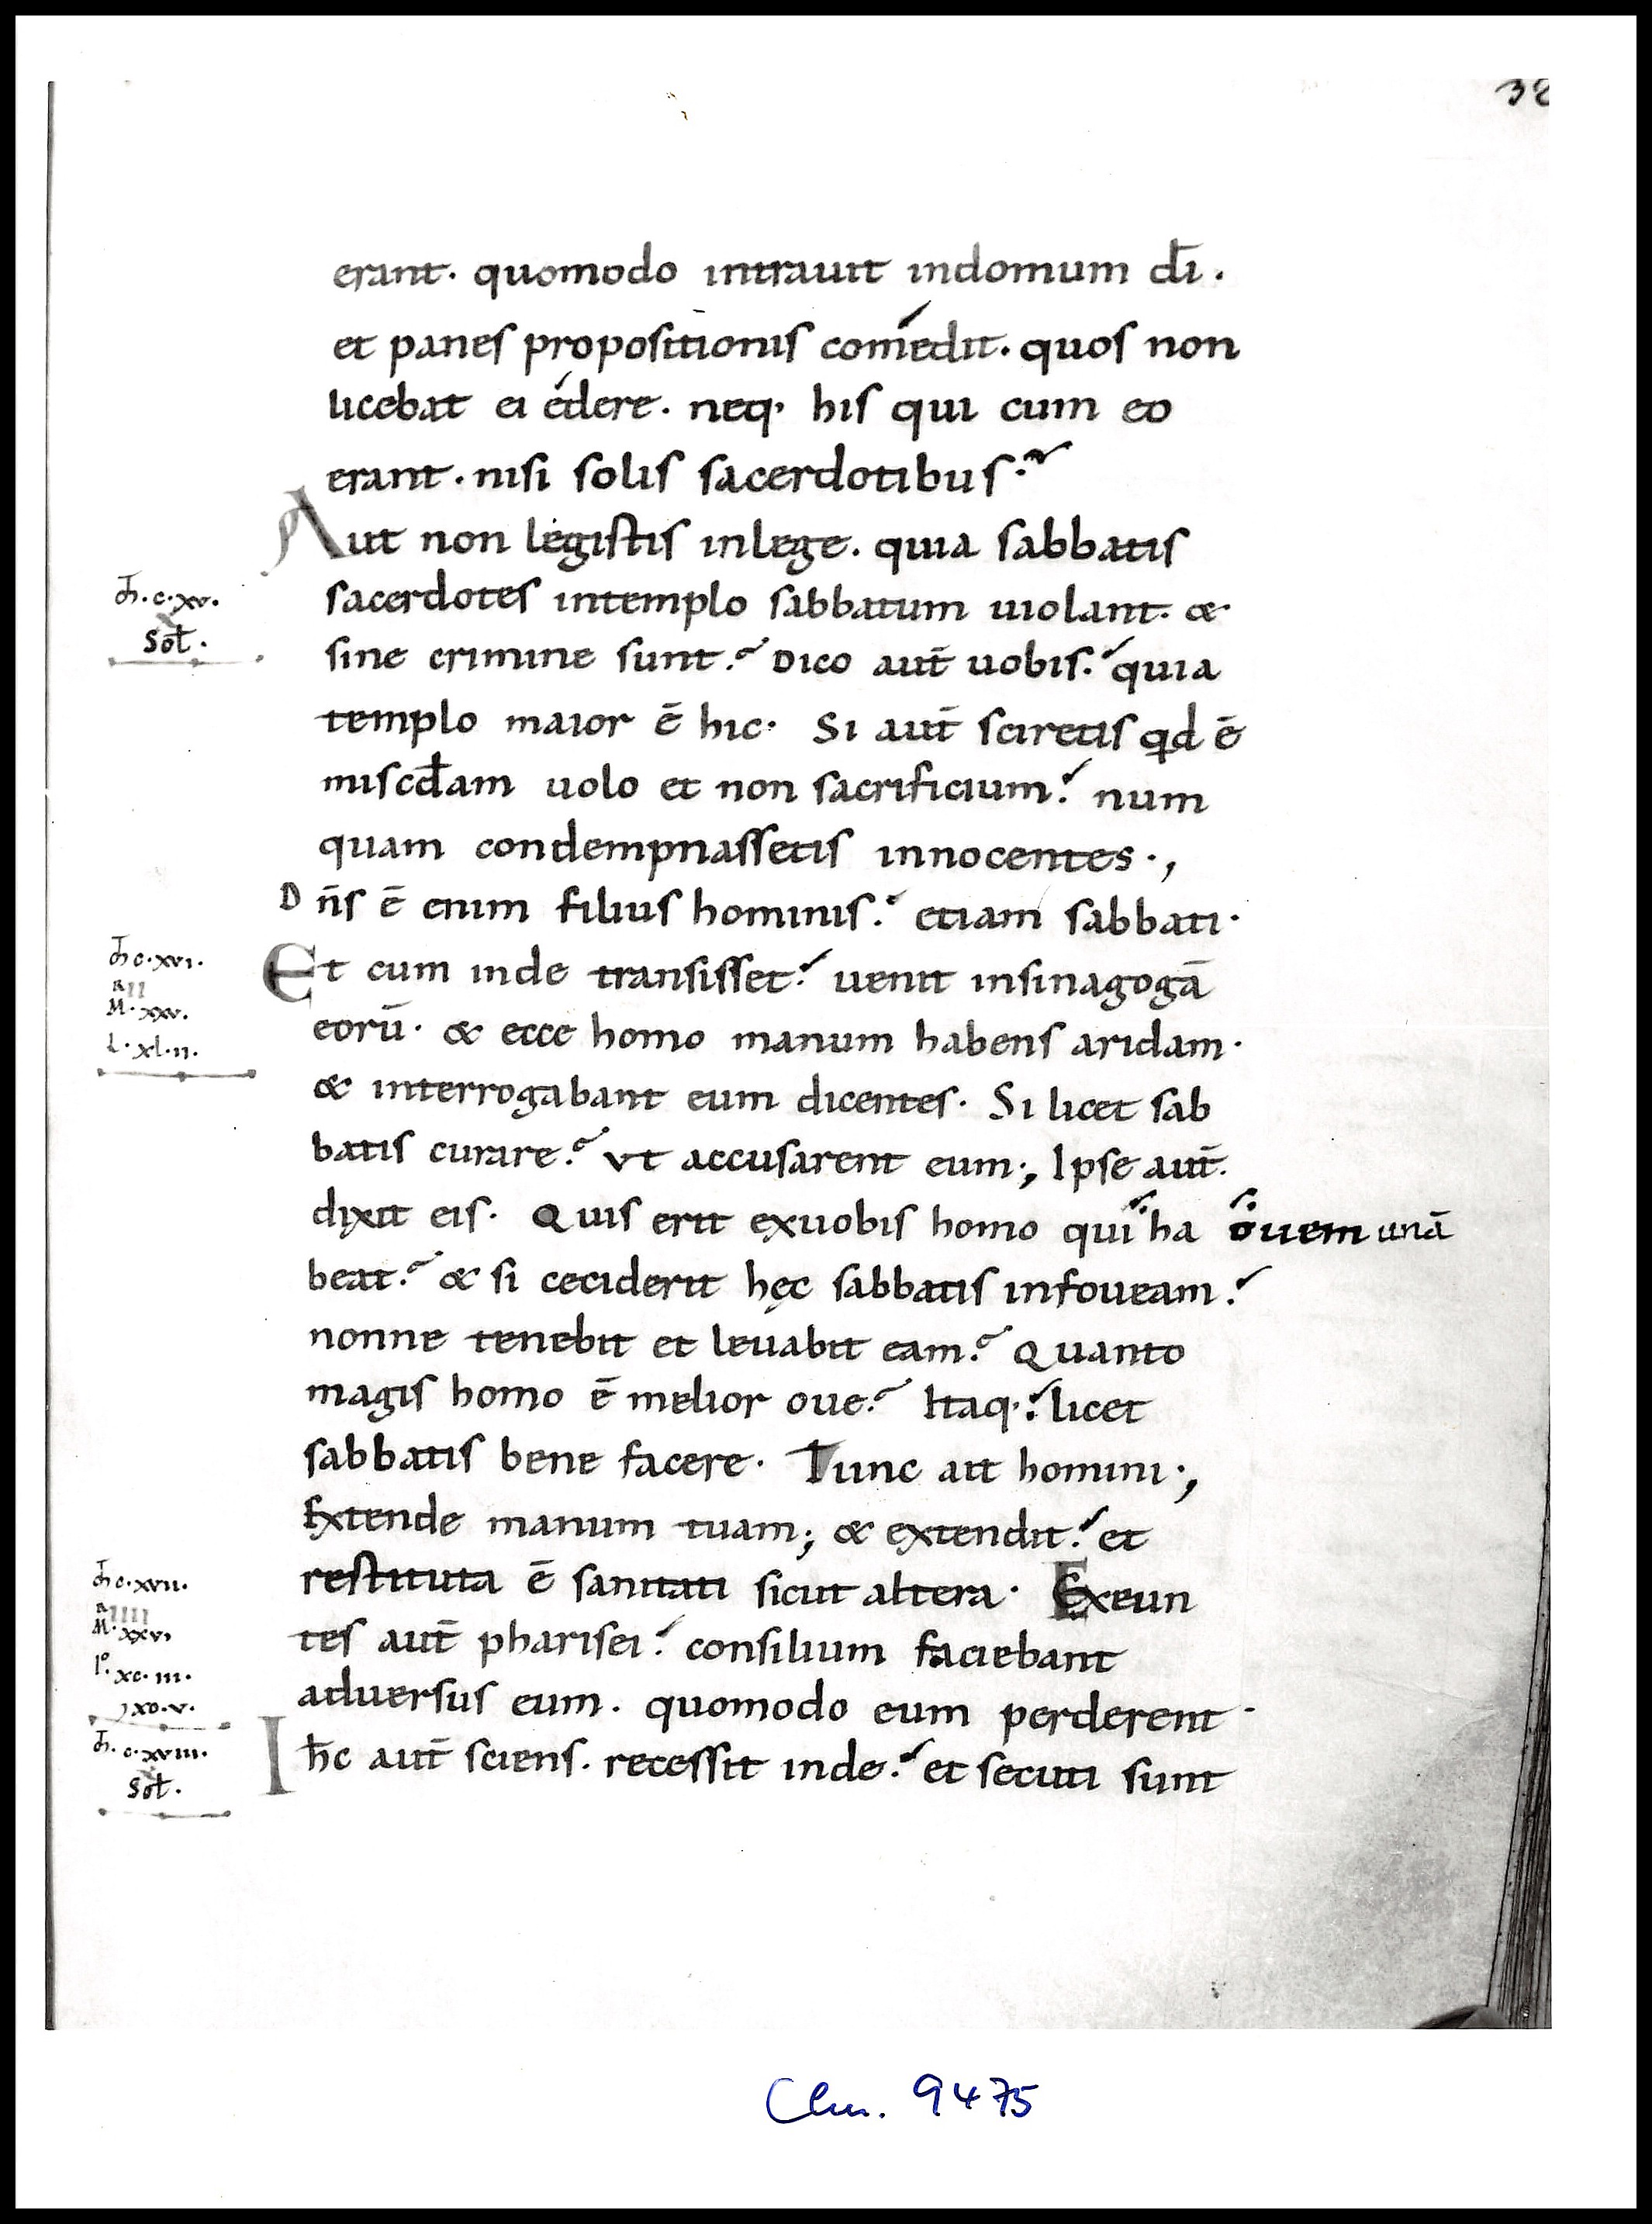 38
erant. quomodo intrauit indomum dī.
et panes propositionis comédit. quos non
licebat ei édere. neq; his qui cum eo
erant. nisi solis sacerdotibus?
Aut non legistis inlege. quia sabbatis
m̄.c.xv.
sacerdotes intemplo sabbatum uiolant. &
Sol.
sine crimine sunt? Dico aut̄ uobis. quia
templo maior ē hic. Si aut̄ sciretis qd ē
miscd̄am uolo et non sacrificium. num
quam condempnassetis innocentes.,
Dn̄s ē enim filius hominis. etiam sabbati.
m̄ c.xvi.
Et cum inde transisset. uenit insinagogā
R II
M.xxv.
eorū. & ecce homo manum habens aridam.
L.xl.ii.
& interrogabant eum dicentes. Si licet sab
batis curare? vt accusarent eum., Ipse aut̄.
dixit eis. Quis erit exuobis homo qui ha ouem unā
beat? & si ceciderit hęc sabbatis infoueam.
nonne tenebit et leuabit eam? Quanto
magis homo ē melior oue? Itaq; licet
sabbatis bene facere. Tunc ait homini.,
Extende manum tuam; & extendit. et
m̄ c.xvii.
restituta ē sanitati sicut altera. Exeun
R IIII
M.xxvi
tes aut̄ pharisei. consilium faciebant
Io.xc.iii.
aduersus eum. quomodo eum perderent.
xc.v.
m̄.c.xviii.
Ih̄c aut̄ sciens. recessit inde. et secuti sunt
Sol.
Clm. 9475